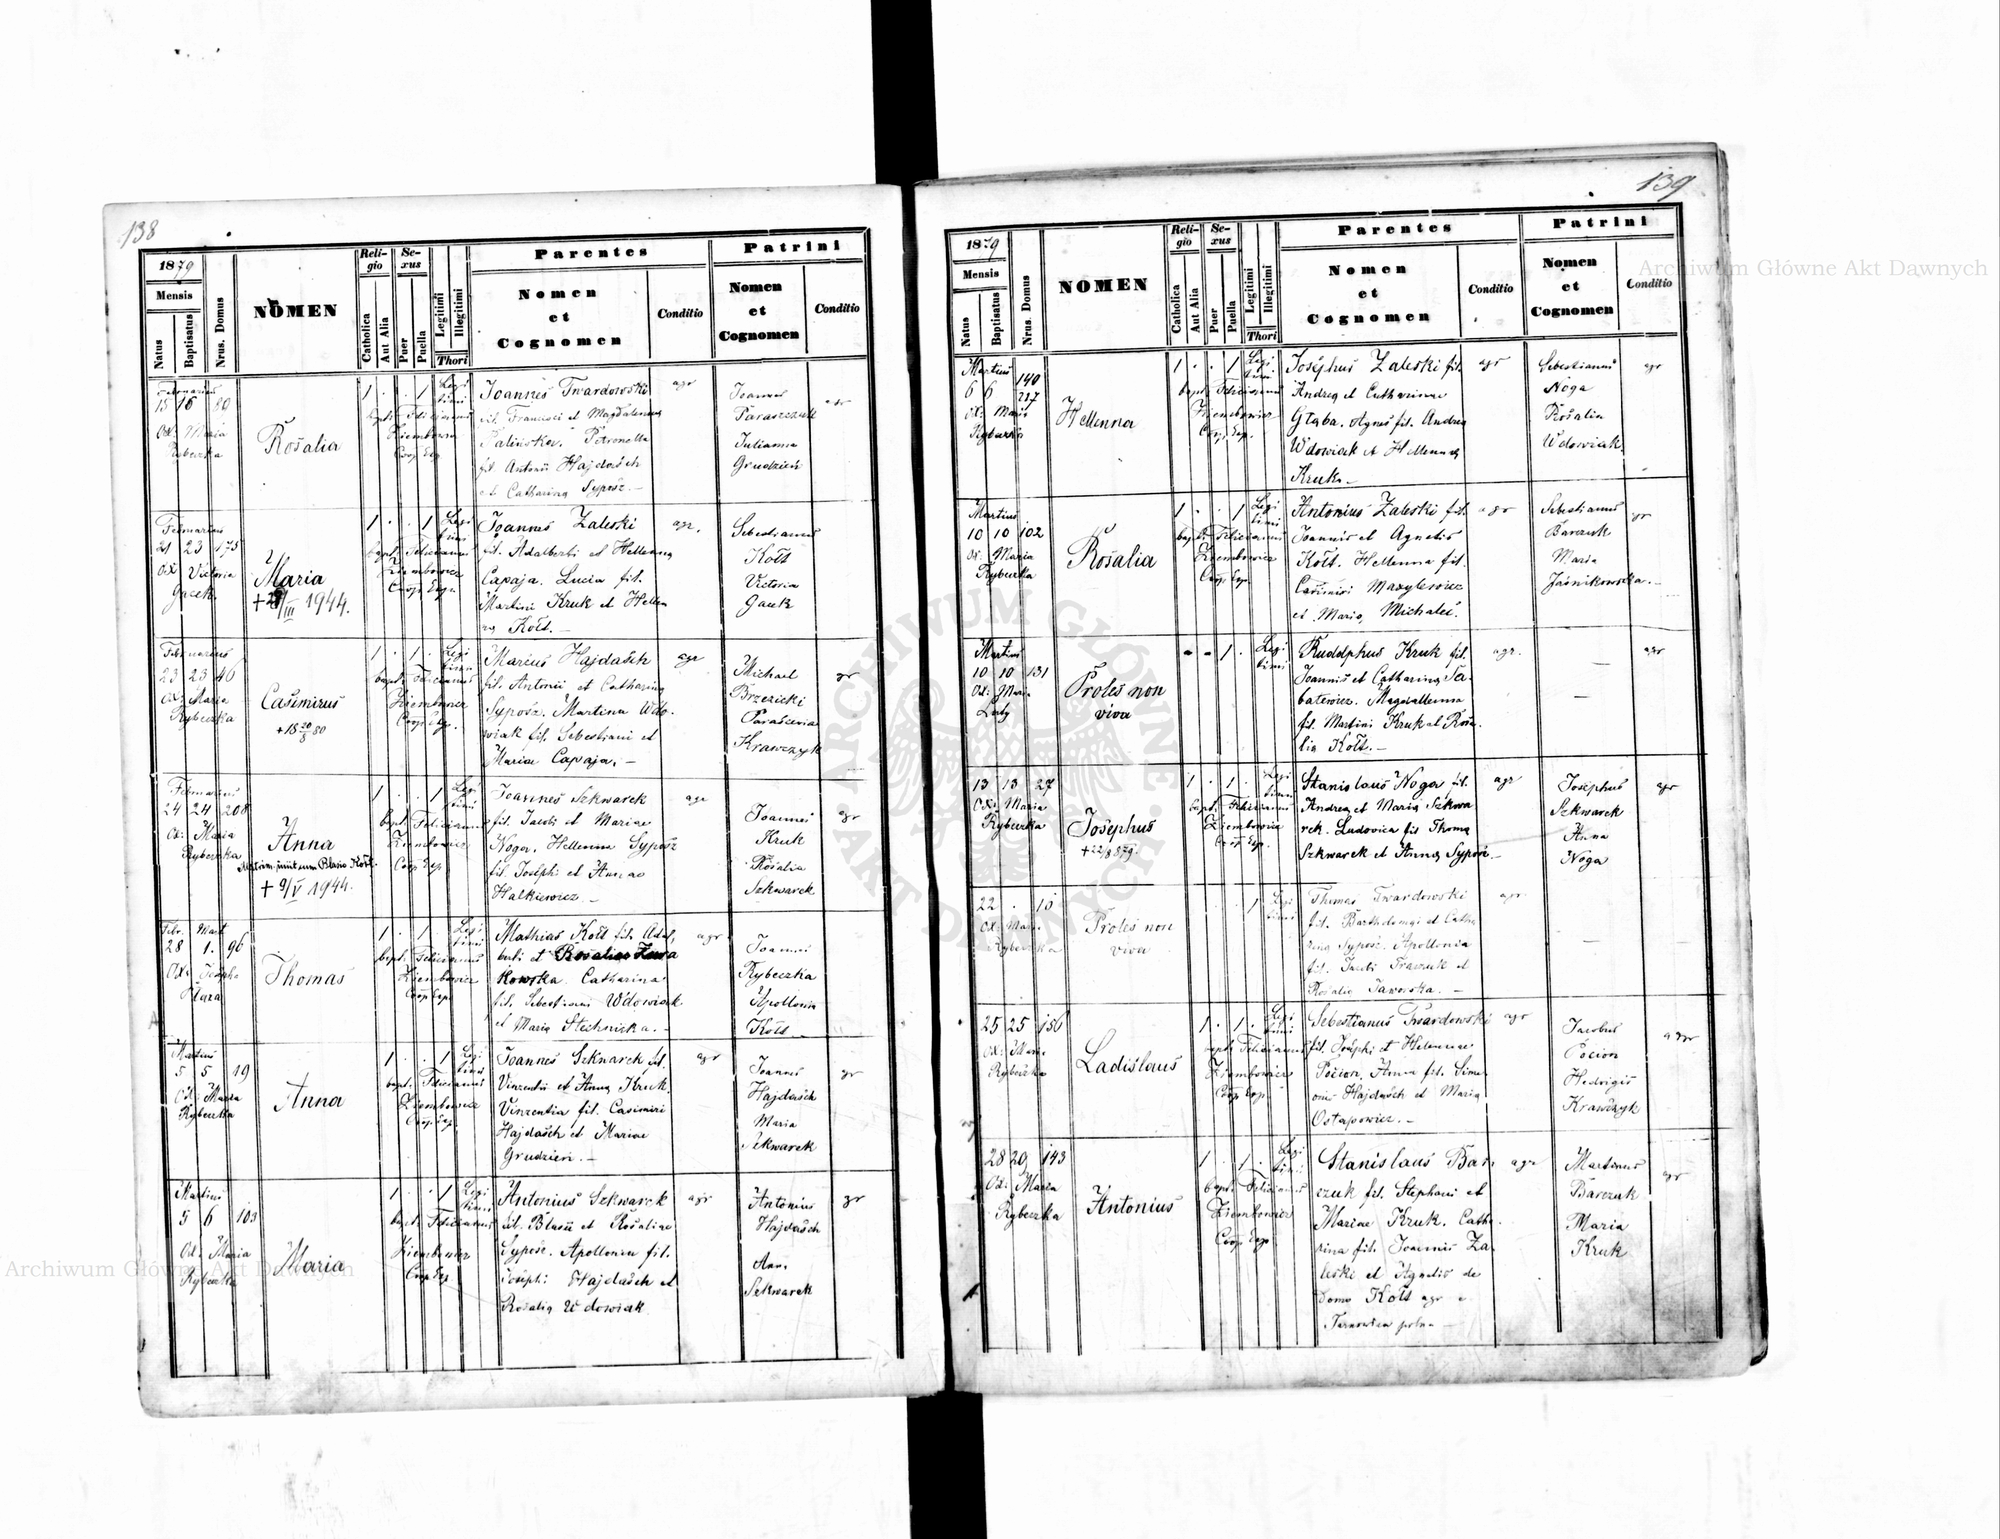 138
1879
Mensis
Natus
Baptisatus
Nrus. Domus
NOMEN
Religio
Catholica
Aut Alia
Sexus
Puer
Puella
Legitimi
Illegitimi
Thori
Parentes
Nomen
et
Cognomen
Conditio
Patrini
Nomen
et
Cognomen
Conditio
Februarius
15 16 80
Ob: Maria
Rybeczka
Rosalia
1 . . 1 Legi
timi
bapt. Felicianus
Ziembowicz
Coop. Exp.
Joannes Twardowski
fil. Francisci et Magdalenna
Palińska. Petronella
fil. Antonii Hajdasch
et Catharina Syposz. –
agr
Joannes
Paraszczuk
Julianna
Grudzień
agr
Februarius
21 23 175
Ob: Victoria
Gacek
Maria
+ /III 1944.
1 . . 1 Legi
timi
bapt. Felicianus
Ziembowicz
Coop. Exp.
Joannes Zaleski
fil. Adalberti et Hellenna
Capaja. Lucia fil.
Martini Kruk et Hellen
na Kott. –
agr.
Sebestianus
Kott
Victoria
Gacek
Februarius
23 23 46
Ob: Maria
Rybeczka
Casimirus
+ 18 20/8 80
1 . 1 . Legi
timi
bapt. Felicianus
Ziembowicz
Coop. Exp.
Marcus Hajdasch
fil. Antonii et Catharina
Syposz. Martina Wdo-
wiak fil. Sebestiani et
Mariae Capaja. –
agr
Michael
Brzezicki
Parascevia
Krawczyk
gr
Februarius
24 24 208
Ob: Maria
Rybeczka
Anna
Matrim. iniit cum Blasio Kott.
+ 9/V 1944.
1 . . 1 Legi
timi
bapt. Felicianus
Ziembowicz
Coop. Exp.
Joannes Szkwarek
fil. Jacobi et Mariae
Noga. Hellenna Syposz
fil. Josephi et Annae
Halkiewicz –
agr
Joannes
Kruk
Rosalia
Szkwarek
agr
Febr. Mart
28 1. 96
Thomas
1 . 1 . Legi
timi
bapt. Felicianus
Ziembowicz
Coop. Exp.
Mathias Kott fil. Adal,
berti et Rosaliae Zawa
kowska. Catharina
fil. Sebestiani Wdowiak
et Maria Stechnicka. –
agr
Joannes
Rybeczka
Apollonia
Kott
Martius
5 5 19
Ob: Maria
Rybeczka
Anna
1 . . 1 Legi
timi
bapt. Felicianus
Ziembowicz
Coop. Exp.
Joannes Szkwarek fil.
Vinzentii et Anna Kruk.
Vinzentia fil. Casimiri
Hajdasch et Mariae
Grudzień. –
agr
Joannes
Hajdasch
Maria
Szkwarek
gr
Martius
5 6 103
Ob: Maria
Rybeczka
Maria
1 . . 1 Legi
timi
bapt. Felicianus
Ziembowicz
Coop. Exp.
Antonius Szkwarek
fil. Blasii et Rosaliae
Syposz. Apollonia fil.
Josephi Hajdasch et
Rosalia Wdowiak
agr
Antonius
Hajdasch
Anna
Szkwarek
gr
139
1879
Mensis
Natus
Baptisatus
Nrus. Domus
NOMEN
Religio
Catholica
Aut Alia
Sexus
Puer
Puella
Legitimi
Illegitimi
Thori
Parentes
Nomen
et
Cognomen
Conditio
Patrini
Nomen
et
Cognomen
Conditio
Martius
6 6 140
217
Ob: Maria
Rybeczka
Hellenna
1 . . 1 Legi
timi
bapt. Felicianus
Ziembowicz
Coop. Exp.
Josephus Zaleski fil.
Andrea et Catharinae
Głąba. Agnes fil. Andrea
Wdowiak et Hellenna
Kruk. –
agr
Sebestianus
Noga
Rosalia
Wdowiak.
agr
Martius
10 10 102
Ob: Maria
Rybeczka
Rosalia
1 . . 1 Legi
timi
bapt. Felicianus
Ziembowicz
Coop. Exp.
Antonius Zaleski fil.
Joannis et Agnetis
Kott. Hellenna fil.
Casimiri Maxylewicz
et Maria Michaleś.
agr
Sebestianus
Barczuk
Maria
Jaśnikowska. –
gr
Martius
10 10 131
Ob: Maria
Luty
Proles non
viva
- - 1 . Legi
timi
Rudolphus Kruk fil.
Joannis et Catharina Sa-
batewicz. Magdallenna
fil. Martini Kruk et Rosa-
lia Kott. –
agr.
–
–
agr
13 13 27
Ob: Maria
Rybeczka
Josephus
+ 22/8 879.
1 . 1 . Legi
timi
bapt. Felicianus
Ziembowicz
Coop. Exp.
Stanislaus Noga fil.
Andrea et Maria Szkwa
rek. Ludovica fil Thoma
Szkwarek et Anna Syposz. –
agr
Josephus
Szkwarek
Anna
Noga
agr
22 . 10
Ob: Maria
Rybeczka
Proles non
viva
. . . 1 Legi
timi
Thomas Twardowski
fil. Barthdomai et Catha
rina Syposz. Apollonia
fil. Jacobi Traczuk et
Rosalia Jaworska. –
agr
–
25 25 156
Ob: Maria
Rybeczka
Ladislaus
1 . 1 . Legi
timi
bapt. Felicianus
Ziembowicz
Coop. Exp.
Sebestianus Twardowski
fil. Josephi et Helennae
Pocion. Anna fil. Sime
onis Hajdasch et Maria
Ostapowicz. –
agr
Jacobus
Pocion
Hedvigis
Krawczyk
agr
28 29 143
Ob: Maria
Rybeczka
Antonius
1 . 1 . Legi
timi
bapt. Felicianus
Ziembowicz
Coop. Exp.
Stanislaus Bar,
czuk fil. Stephani et
Mariae Kruk. Catha-
rina fil. Joannis Za-
leski et Agnetis de
Domo Kott agr e
Tarnowica polna –
agr
Martinus
Barczuk
Maria
Kruk
gr
Archiwum Główne Akt Dawnych
Archiwum Główne Akt Dawnych
ARCHIWUM GŁÓWNE AKT DAWNYCH